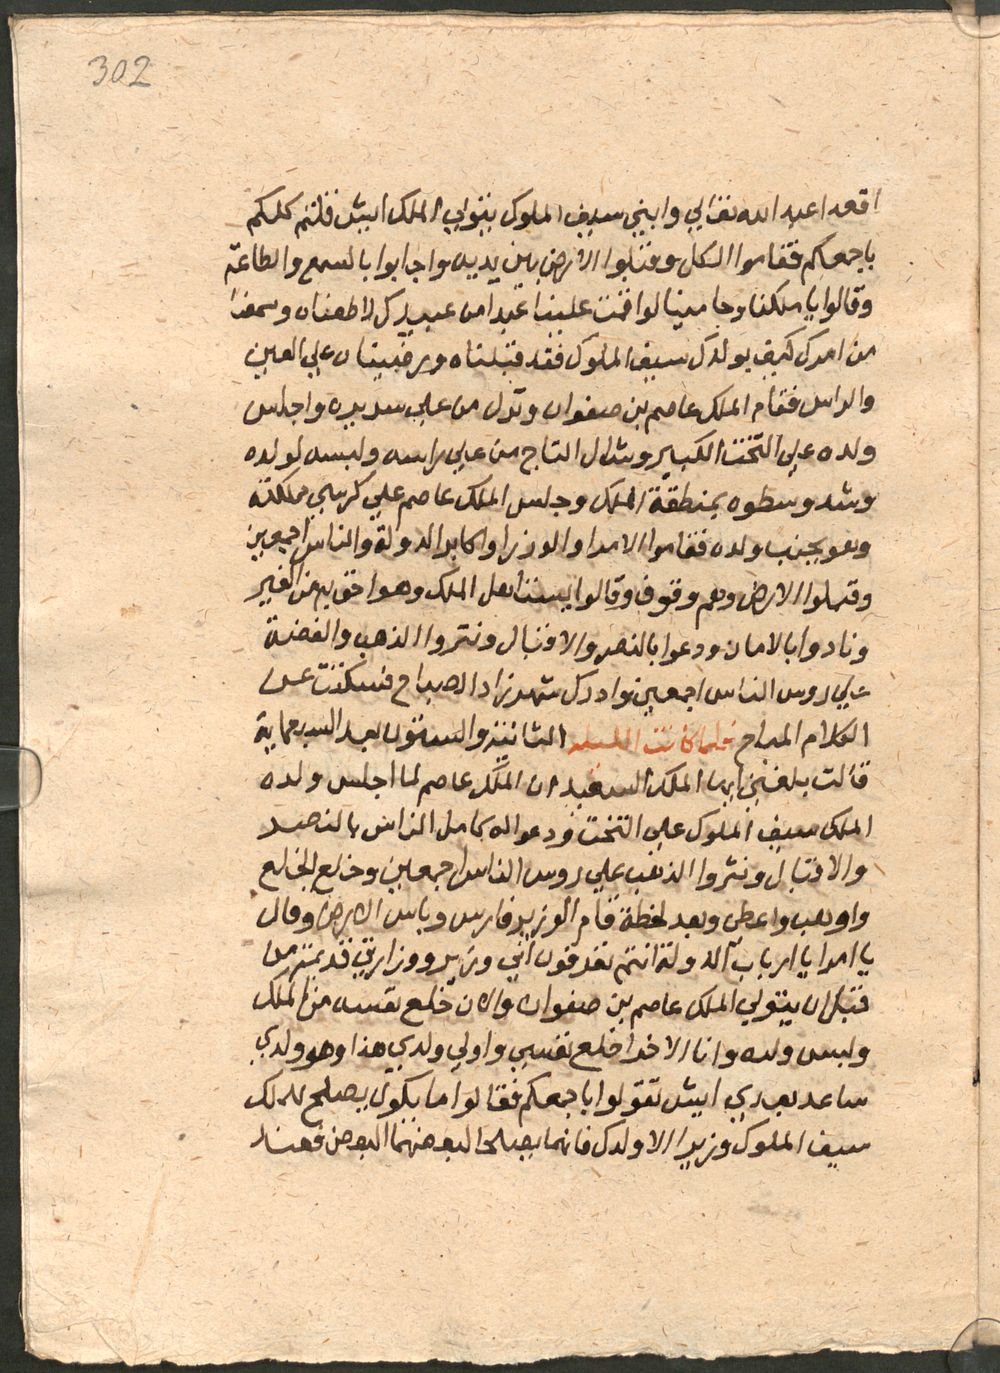 302
اقعد اعبد الله تعالي وابني سيف الملوك يتولي الملك ايش قلتم كلكم
باجمعكم فقاموا الكل وقبلوا الارض بين يديه واجابوا بالسمع والطاعة
وقالوا يا ملكنا وحامينا لو اقمت علينا عبدا من عبيدك لاطعناه وسمعنا
من امرك كيف بولدك سيف الملوك فقد قبلناه ورضيناه علي العين
والراس فقام الملك عاصم بن صفوان ونزل من علي سريره واجلس
ولده علي التخت الكبير وشال التاج من علي راسه ولبسه لولده
وشد وسطوه بمنطقة الملك وجلس الملك عاصم علي كرسي مملكته
وهو بجنب ولده فقاموا الامرا والوزرا واكابر الدولة والناس اجمعين
وقبلوا الارض وهم وقوف وقالوا يستاهل الملك وهو احق به من الغير
ونادوا بالامان ودعوا بالنصر والاقبال ونثروا الذهب والفضة
علي روس الناس اجمعين وادرك شهرزاد الصباح فسكتت عن
الكلام المباح فلما كانت الليلة الثانية والستون بعد السبعماية
قالت بلغني ايها الملك السعيد ان الملك عاصم لما اجلس ولده
الملك سيف الملوك علي التخت ودعوا له كامل الناس بالنصر
والاقبال ونثروا الذهب علي روس الناس اجمعين وخلع الخلع
واوهب واعطي وبعد لحظة قام الوزير فارس وباس الارض وقال
يا امرا يا ارباب الدولة انتم تعرفون اني وزير ووزارتي قديمة من
قبل ان يتولي الملك عاصم بن صفوان والان خلع نفسه من الملك
ولبس ولده وانا الاخر اخلع نفسي واولي ولدي هذا وهو ولدي
ساعد بعدي ايش تقولوا باجمعكم فقالوا ما يكون يصلح للملك
سيف الملوك وزيرا الا ولدك فانهما يصلحا لبعضهما البعض فعند